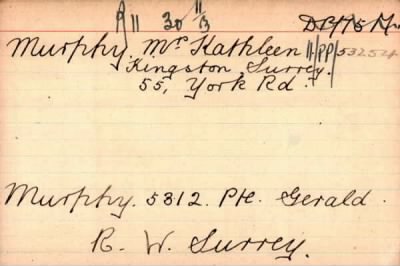 11 30 11/3
Murphy, Mrs Kathleen 11/PP/53254
Kingston, Surrey.
55, York Rd.
Murphy. 5312. Pte. Gerald.
R. W. Surrey.